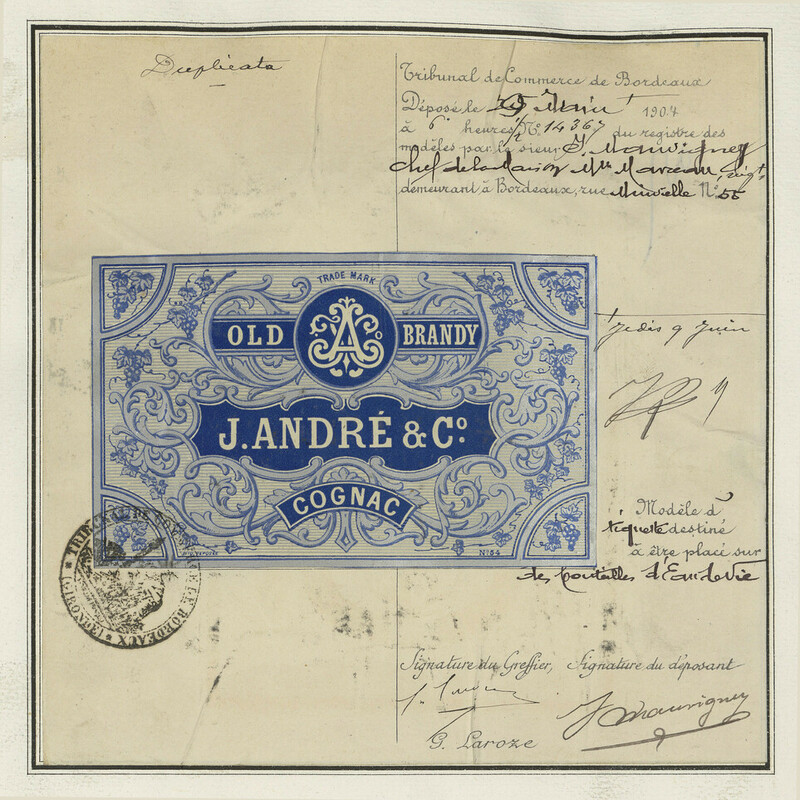 Duplicata
Tribunal de Commerce de Bordeaux
Déposé le 1904
à 6 heures 1/2 N° 14367 du registre des
modèles par le sieur J. Mauvigney
chef de la Maison Marceau
demeurant à Bordeaux, rue Minvielle N° 55
TRADE MARK
OLD A Co BRANDY
J. ANDRÉ & Co.
COGNAC
N° 54
9 Juin
Modèle d'
étiquette destiné
à être placé sur
des bouteilles d'Eau de Vie
TRIBUNAL DE COMMERCE DE BORDEAUX * (GIRONDE) *
Signature du Greffier, Signature du déposant
J. Mauvigney
G. Laroze